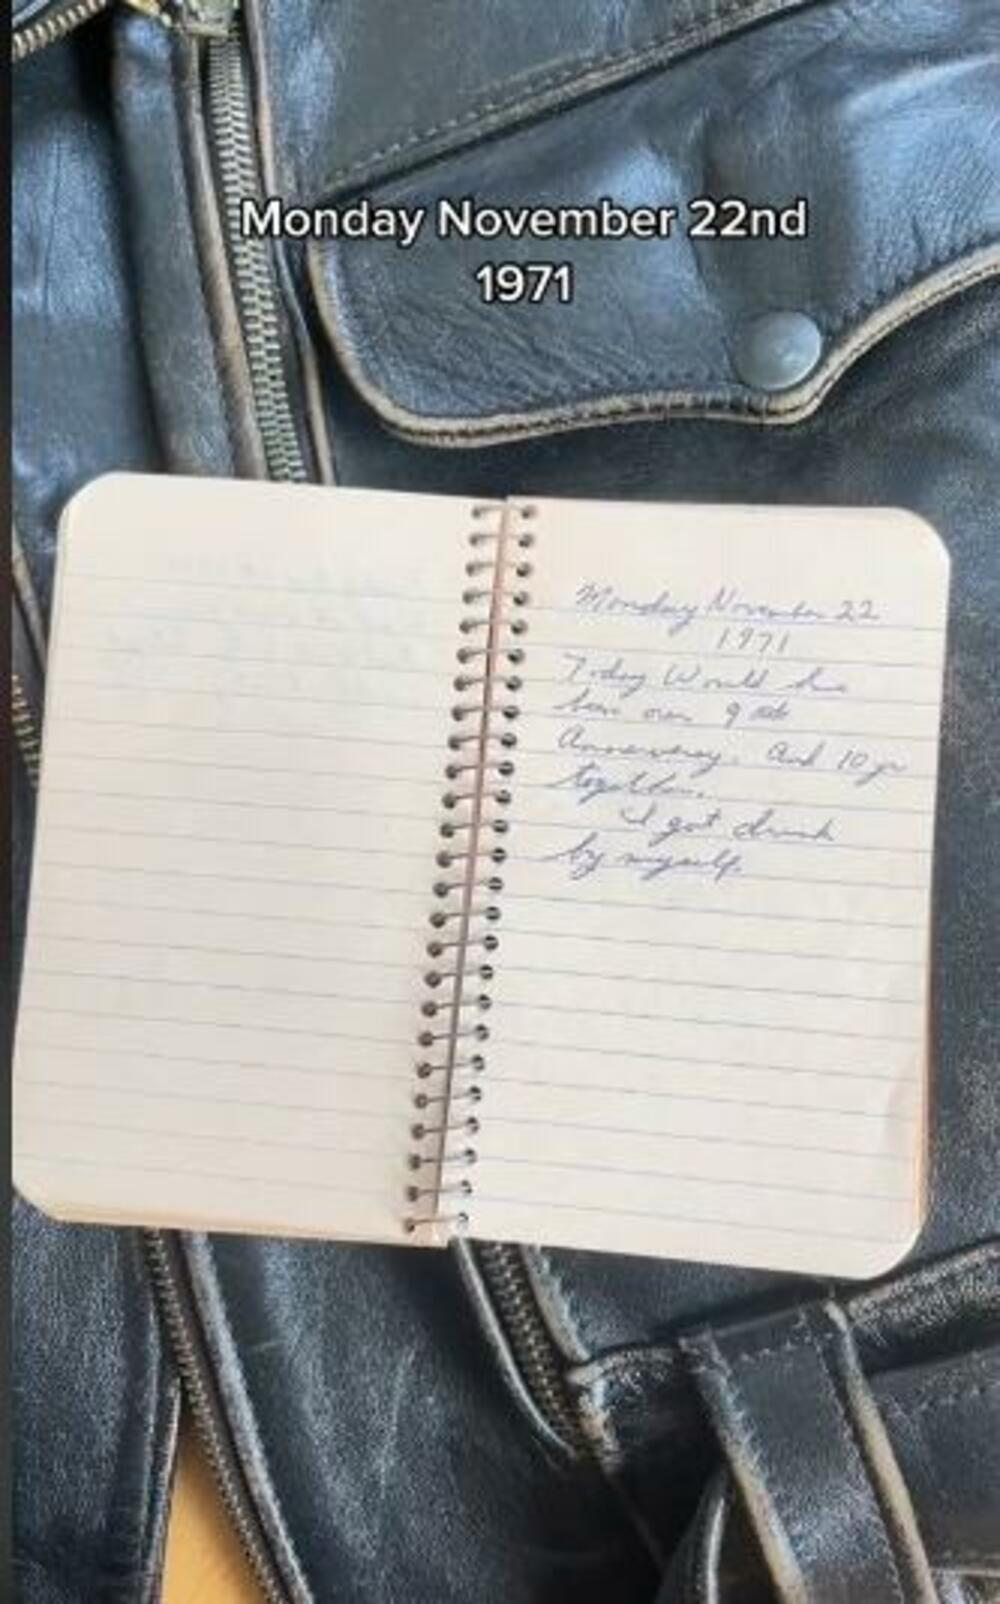 Monday November 22nd
1971
Monday November 22
1971
Today Would have
been our 9th
Anneversey. And 10 yr
together.
I got drunk
by myself.